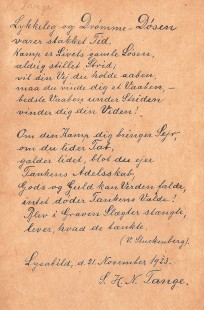 Lykkeleg og Drömme-Dösen
varer stakket Tid.
Kamp er Livets gamle Lösen,
aldrig stillet Strid;
vil din Vej du holde aaben,
maa du vinde dig et Vaaben, –
bedste Vaaben under Striden
vinder dig din Viden!
Om den Kamp dig bringer Sejr,
om du lider Tab,
gælder lidet, blot du ejer
Tankens Adelsskab,
Gods og Guld kan Verden fælde,
intet döder Tankens Vælde!
Blev i Graven Slægter stængte,
lever, hvad de tænkte.
(V. Stuckenberg).
Lysabild, d. 21. November 1923.
S. H. N. Tange.